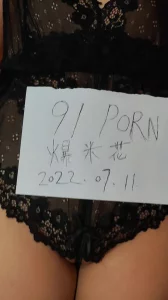 91 PORN
爆米花
2022.07.11